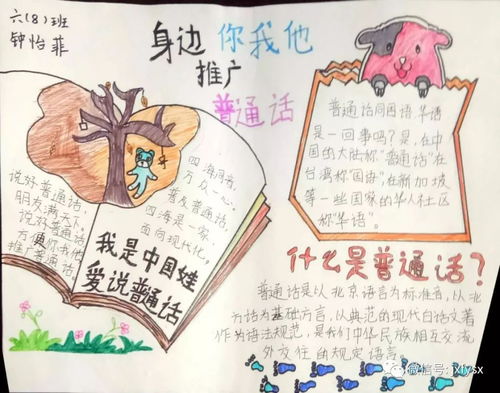 六(8)班
钟怡菲
身边你我他
推广
普通话
普通话同国语华语
是一回事吗?是,在中
国的大陆称"普通话"在
台湾称"国语",在新加坡
等一些国家的华人社区
称"华语"。
说好普通话,
朋友满天下。
说好普通话,
方便你我他
推广普通话
四海同音,
万众一心,
普及普通话,
四海是一家,
面向现代化,
我是中国娃
爱说普通话
什么是普通话?
普通话是以北京语言为标准音,以北
方话为基础方言,以典范的现代白话文著
作为语法规范,是我们中华民族相互交流
外交往的规定语言
微信号: jxlysx